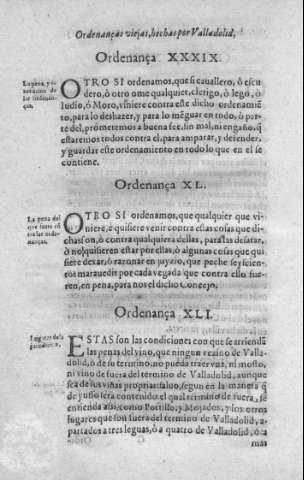 Ordenanças viejas, hechas por Valladolid,
Ordenança XXXIX.
La pena, y
OTRO SI ordenamos, que si cauallero, ò escu
dero, ò otro ome qualquier, clerigo, ò lego, ò
Iudio, ò Moro, viniere contra este dicho ordenamiẽ
to, para lo deshazer, y para lo mẽguar en todo, ò par
te del, prometremos a buena fee, sin mal, ni engaño, q̃
estaremos todos contra el, para amparar, y defender,
y guardar este ordenamiento en todo lo que en el se
contiene.
Ordenança XL.
La pena del
que fuere cõ
tra las orde-
nanças.
OTRO SI ordenamos, que qualquier que vi-
niere, ò quisiere venir contra estas cosas que di-
chas son, ò contra qualquiera dellas, para las desatar,
ò no quisieren estar por ellas, ò algunas cosas que qui
siere dexar, ò razonar en juyzio, que peche seyscien-
tos marauedis por cada vegada que contra ello fue-
ren, en pena, para nos el dicho Concejo.
Ordenança XLI.
ESTAS son las condiciones con que se arriendã
las penas del vino, que ningun vezino de Valla-
dolid, ò de su termino, no pueda traer vua, ni mosto,
ni vino de fuera del termino de Valladolid, aunque
sea de sus viñas proprias: saluo, segun en la manera q̃
de yuso sera contenido el qual termino de fuera, se
entienda assi, como Portillo, y Mojados, y los otros
lugares que son fuera del termino de Valladolid, a-
partados a tres leguas, ò a quatro de Valladolid, ò a
mas